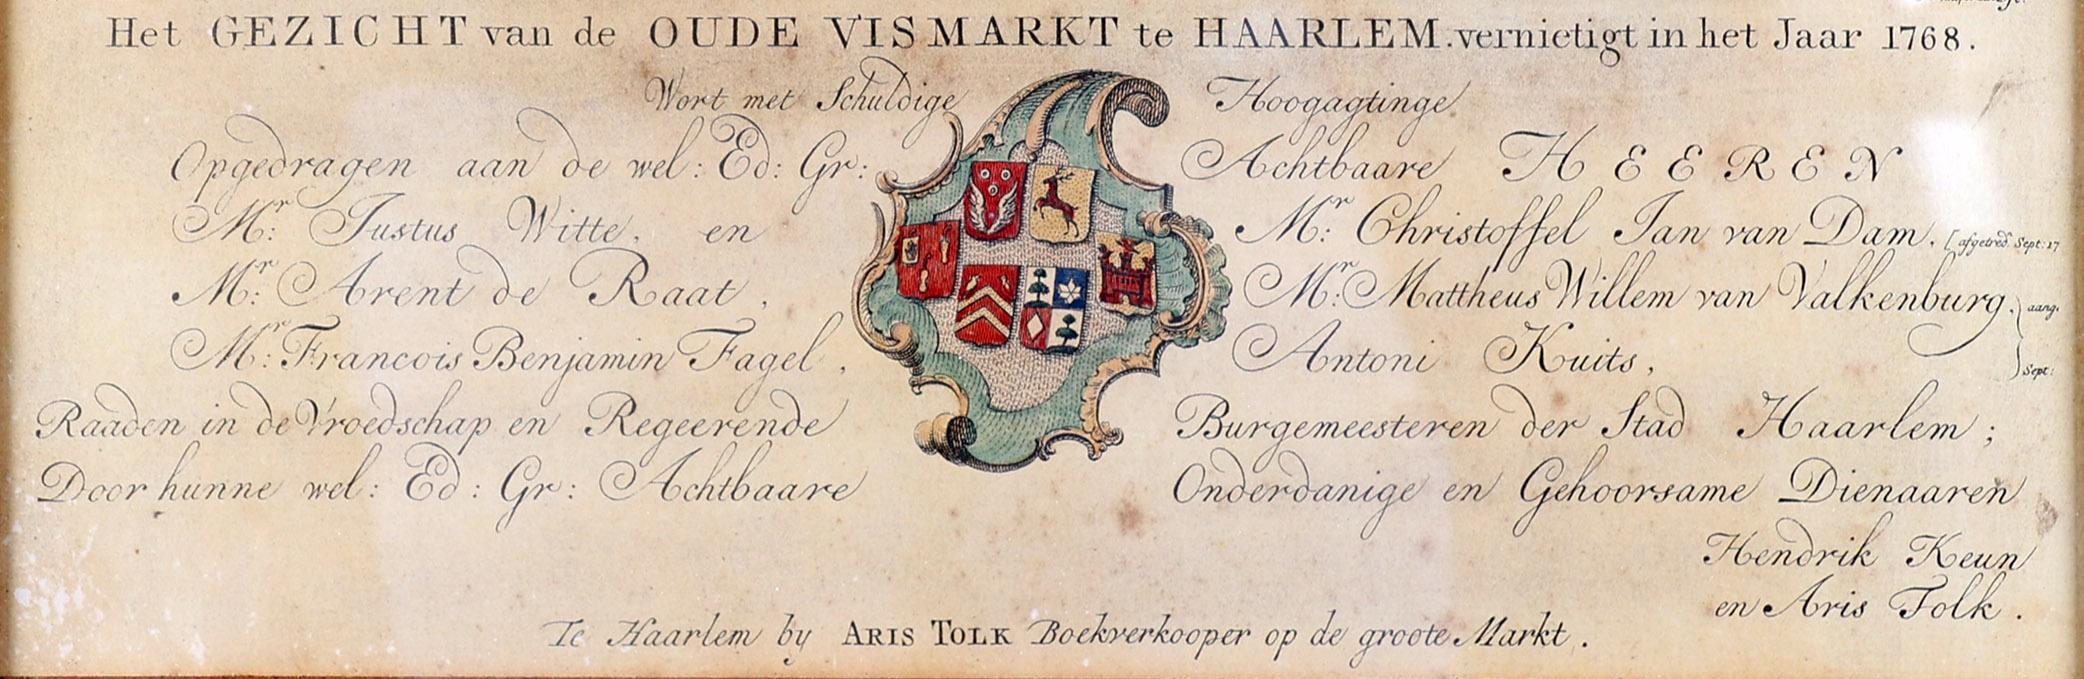 Het GEZICHT van de OUDE VISMARKT te HAARLEM. vernietigt in het Jaar 1768.
Wort met Schuldige Hoogagtinge
Opgedragen aan de wel: Ed: Gr: Achtbaare HEEREN
Mr: Justus Witte, en Mr: Christoffel Jan van Dam, [afgetred. Sept: 17
Mr: Arent de Raat, Mr: Mattheus Willem van Valkenburg, } aang.
Mr: Francois Benjamin Fagel, Antoni Kuits, } Sept:
Raaden in de Vroedschap en Regeerende Burgemeesteren der Stad Haarlem;
Door hunne wel: Ed: Gr: Achtbaare Onderdanige en Gehoorsame Dienaaren
Hendrik Keun
en Aris Tolk.
Te Haarlem by ARIS TOLK Boekverkooper op de groote Markt.